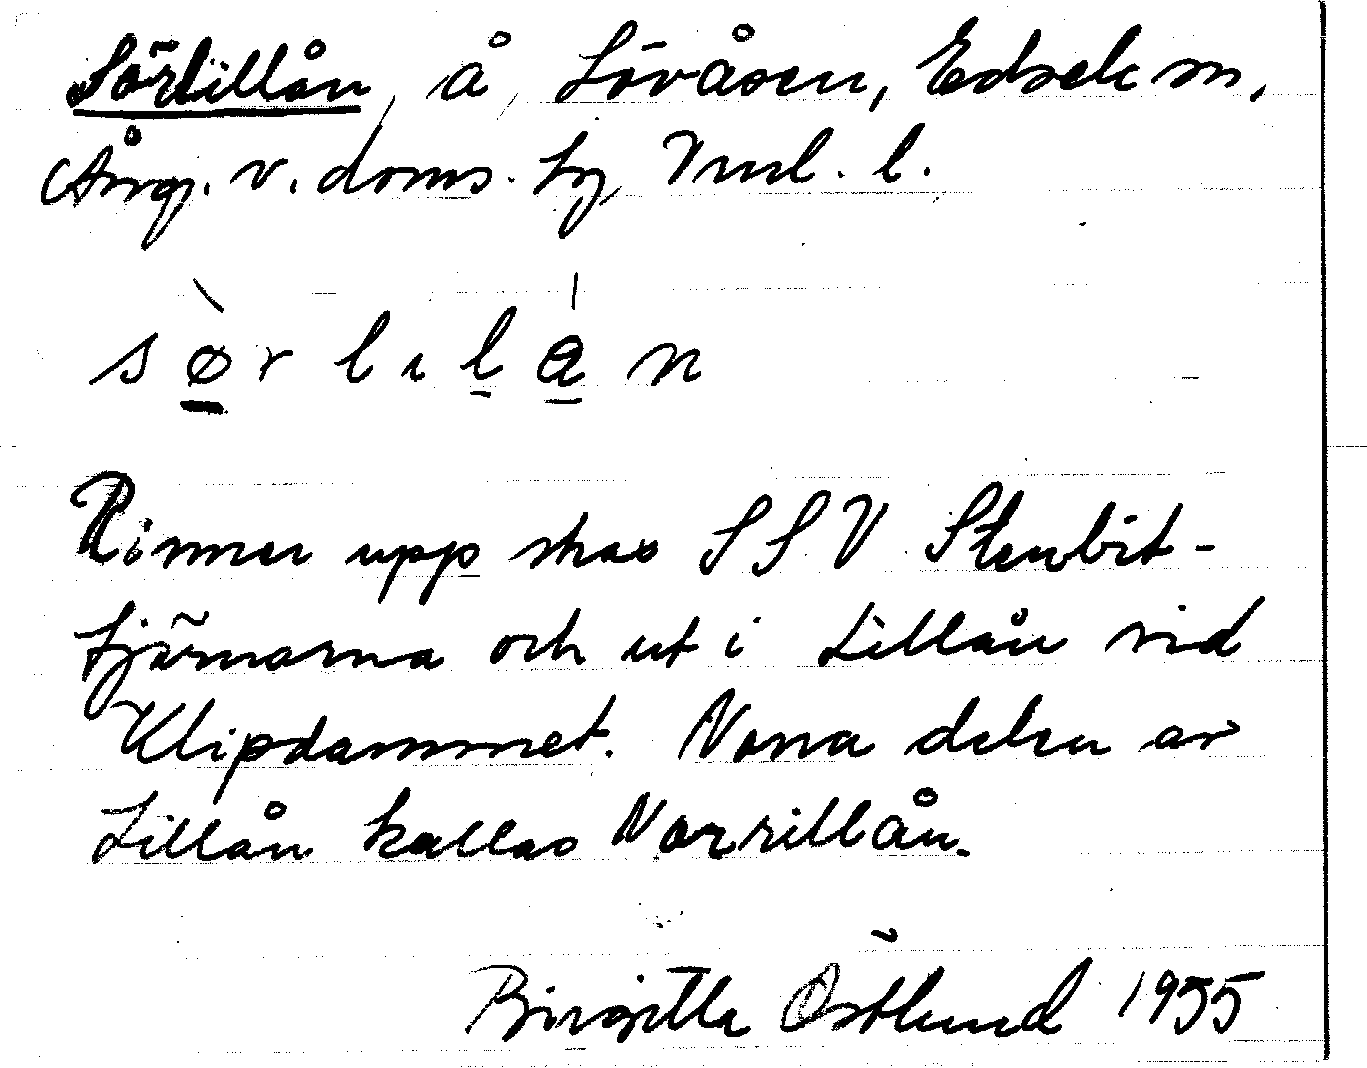 Sörlillån, å, Lövåsen, Edsele sn,
Ång. v. doms. hg Vnl. l.
sørlılån
Rinner upp strax SSV Stenbit-
tjärnarna och ut i Lillån vid
Klipdammet. Norra delen av
Lillån kallas Norrillån.
Birgitta Östlund 1955